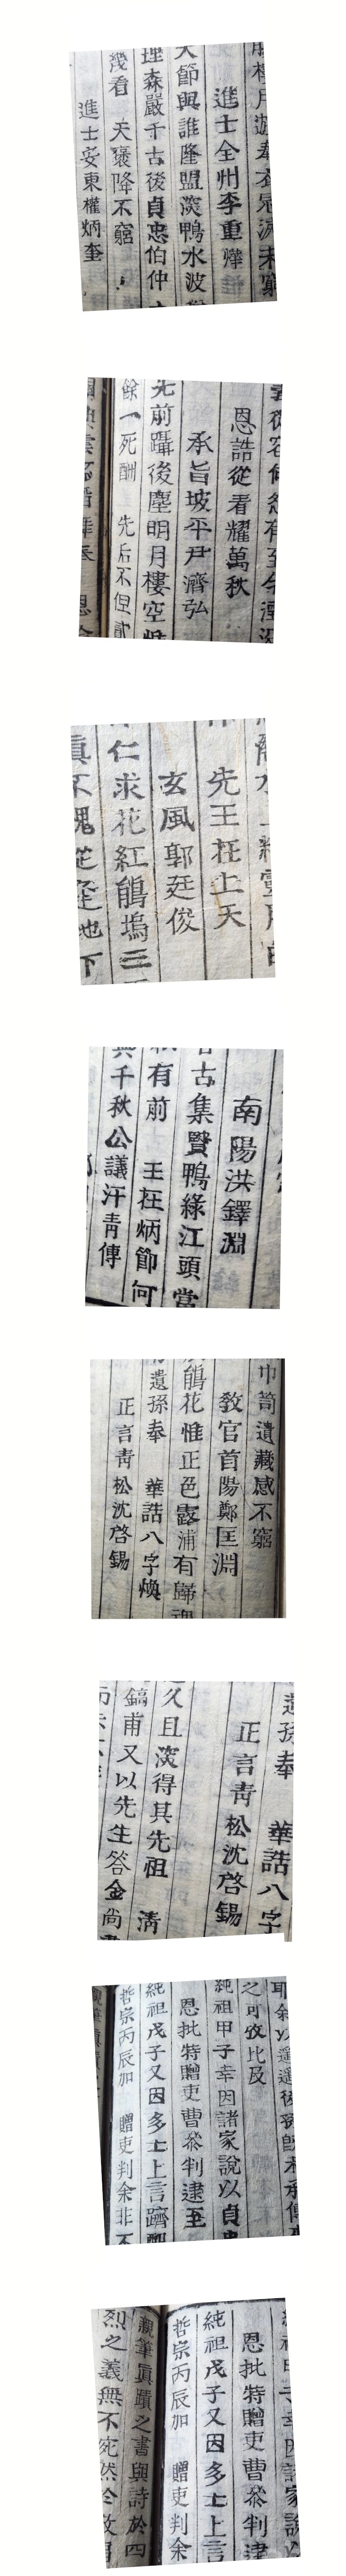 進士全州李重燁
大節與誰隆盟淡鴨水波
理森嚴千古後貞忠伯仲
幾看　天褒降不窮
進士安東權炳奎
恩誥從看耀萬秋
承旨坡平尹濟弘
先前躡後塵明月樓空惟
餘一死酬　先后不但
先王在上天
玄風郭廷俊
仁求花紅鵑塢三
眞不愧從塗地下
南陽洪鐸淵
古集賢鴨綠江頭當
有前　王在炳節何
千秋公議汗靑傳
巾笥遺藏感不窮
敎官首陽鄭匡淵
鵑花惟正色露浦有歸魂
遺孫奉　華誥八字煥
正言靑松沈啓錫
遺孫奉　華誥八字
正言靑松沈啓錫
久且淡得其先祖　淸
鎬甫又以先生答金尙
之可攷比及
純祖甲子幸因諸家說以貞忠
恩批特贈吏曹參判逮至
純祖戊子又因多士上言躋
哲宗丙辰加　贈吏判余非不
恩批特贈吏曹參判逮
純祖戊子又因多士上言
哲宗丙辰加　贈吏判余
親筆眞蹟之書與詩於四
烈之義無不宛然